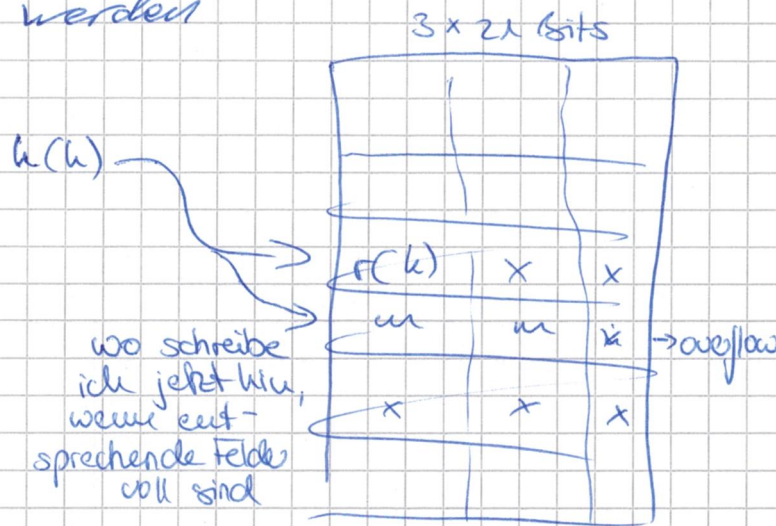 werden
3 x 21 Bits
h(k)
r(k) x x
m m x
→ overflow
wo schreibe
ich jetzt hin,
wenn ent-
sprechende Felder
voll sind
x x x